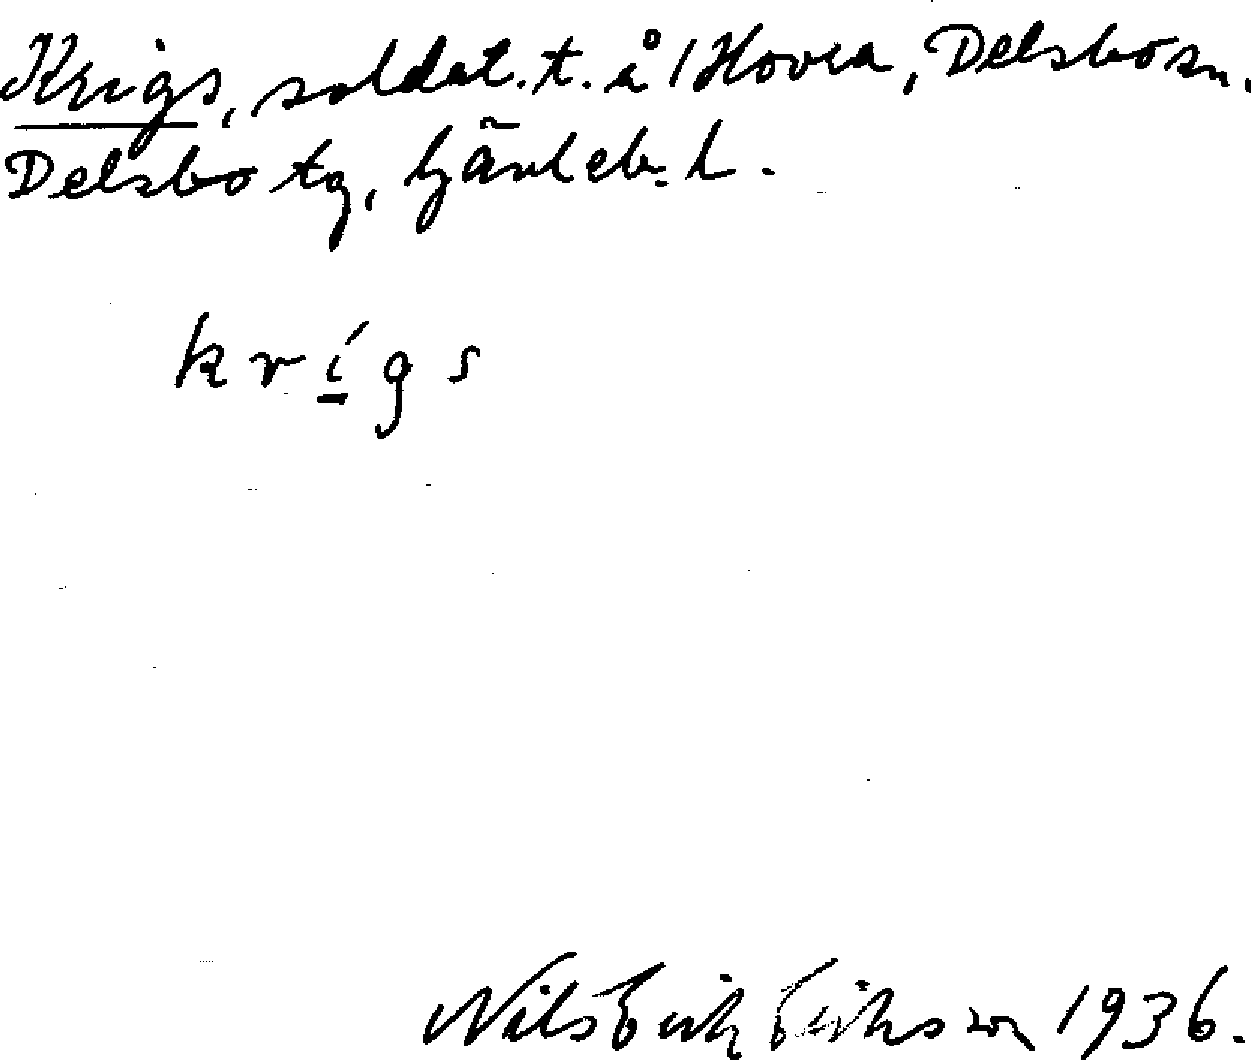 Krigs, soldat.t. å 1 Hovra, Delsbo sn.
Delsbo tg, Gävleb. l.
krígs
Nils Erik Eriksson 1936.